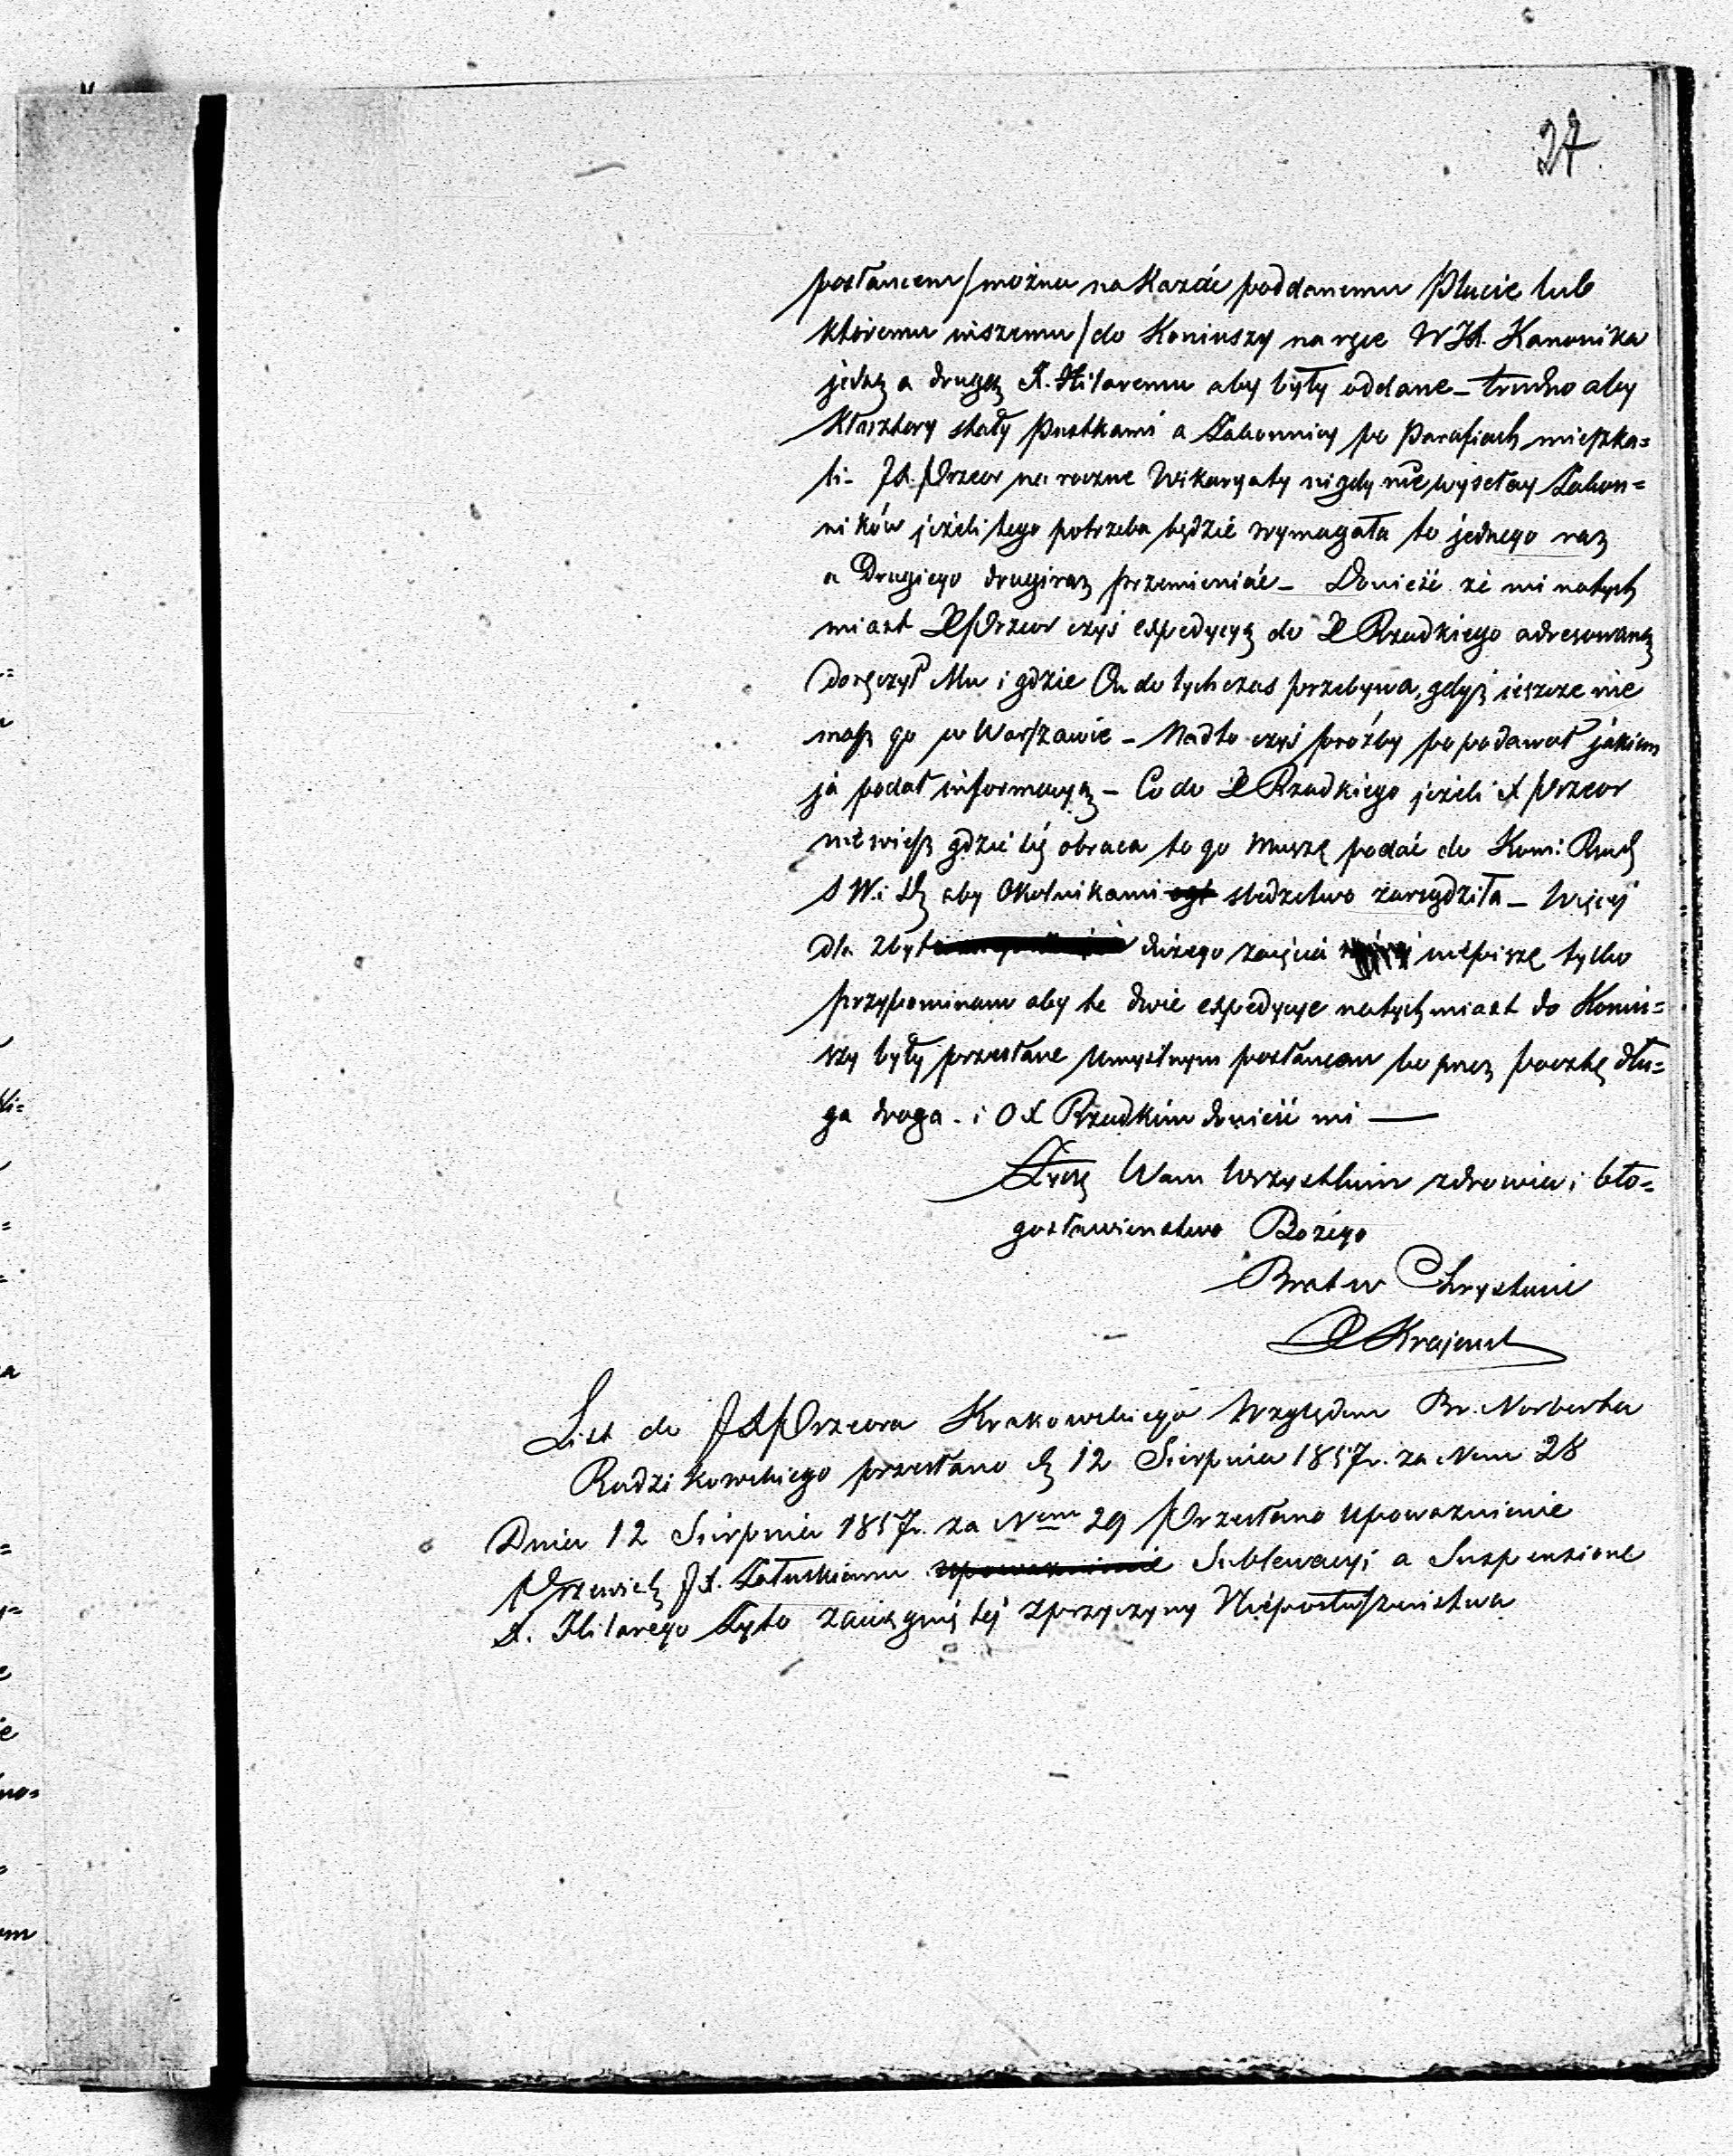 27.
posłańcem/można nakazać poddanemu Płucie lub
któremu inszemu/do Koniuszy na ręce WJX. Kanonika
jedną a drugą X. Hilaremu aby były oddane – trudno aby
Klasztory stały pustkami a Zakonnicy po Parafiach mieszka=
li – JX. Przeor na roczne Wikaryaty nigdy nie wysełay Zakon=
ników jeżeli tego potrzeba będzie wymagała to jednego raz
a Drugiego drugi raz przemieniać – Donieść że mi natych
miast X Przeor czyś expedycyą do X Rzadkiego adresowaną
Doręczył Mu i gdzie On do tychczas przebywa, gdyż ieszcze nie
masz go w Warszawie – Nadto czyś prośby popodawał jakiem
ja podał informacyą – Co do X Rzadkiego jeżeli X Przeor
nie wiesz gdzie się obraca to go muszę podać do Kom: Rząd
S W. i D. aby Okolnikami śledztwo zarządziła – Więcej
dla zbyt dużego zajęcia nie piszę tylko
przypominam aby te dwie expedycye natychmiast do Koniu=
szy były przesłane umyślnym posłańcem bo przez pocztę dłu=
ga droga – i O X Rzadkim donieść mi —
Życzę Wam Wszystkim zdrowia i bło=
gosławieństwa Bożego
Brat w Chrystusie
X Krajewsk
List do JX Przeora Krakowskiego Względem Br. Norberta
Radzikowskiego przesłano d. 12 Sierpnia 1857 r. za Nem 28
Dnia 12 Sierpnia 1857 r. za Nem 29 Przesłano upoważnienie
JX. Załuskiemu upoważnienie Sublewacyi a Suspensione
X. Hilarego Zęto zaciągniętej z przyczyny Nieposłuszeństwa